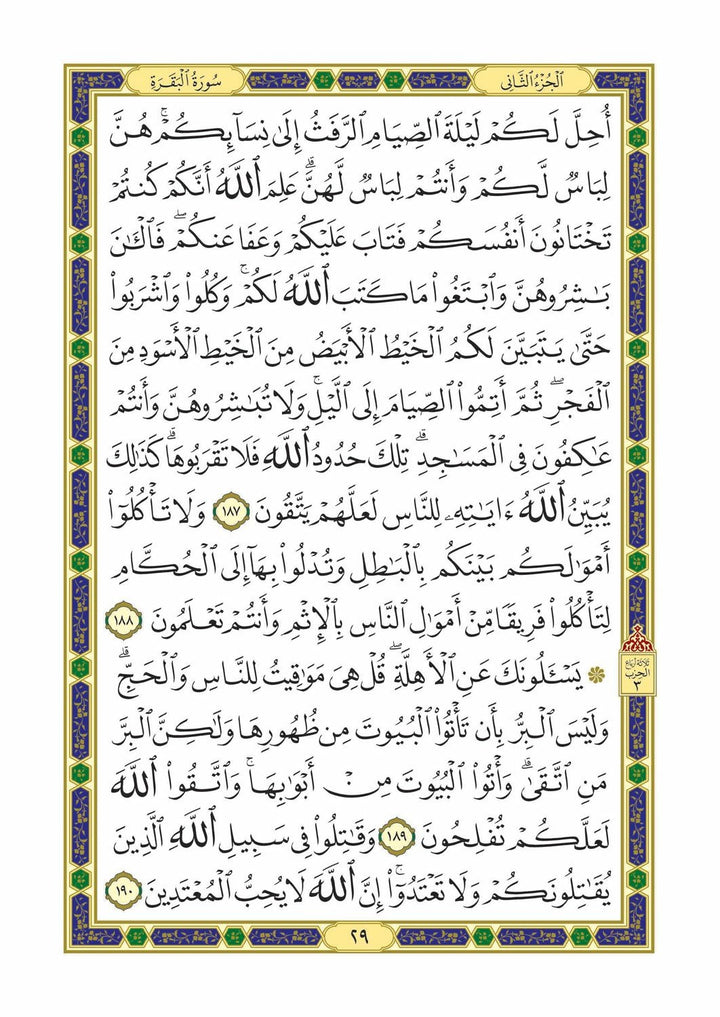 الجُزْءُ الثَّانِي
سُورَةُ البَقَرَةِ
أُحِلَّ لَكُمْ لَيْلَةَ ٱلصِّيَامِ ٱلرَّفَثُ إِلَىٰ نِسَآئِكُمْ ۚ هُنَّ
لِبَاسٌ لَّكُمْ وَأَنتُمْ لِبَاسٌ لَّهُنَّ ۗ عَلِمَ ٱللَّهُ أَنَّكُمْ كُنتُمْ
تَخْتَانُونَ أَنفُسَكُمْ فَتَابَ عَلَيْكُمْ وَعَفَا عَنكُمْ ۖ فَٱلْـَٰٔنَ
بَـٰشِرُوهُنَّ وَٱبْتَغُوا۟ مَا كَتَبَ ٱللَّهُ لَكُمْ ۚ وَكُلُوا۟ وَٱشْرَبُوا۟
حَتَّىٰ يَتَبَيَّنَ لَكُمُ ٱلْخَيْطُ ٱلْأَبْيَضُ مِنَ ٱلْخَيْطِ ٱلْأَسْوَدِ مِنَ
ٱلْفَجْرِ ۖ ثُمَّ أَتِمُّوا۟ ٱلصِّيَامَ إِلَى ٱلَّيْلِ ۚ وَلَا تُبَـٰشِرُوهُنَّ وَأَنتُمْ
عَـٰكِفُونَ فِى ٱلْمَسَـٰجِدِ ۗ تِلْكَ حُدُودُ ٱللَّهِ فَلَا تَقْرَبُوهَا ۗ كَذَٰلِكَ
يُبَيِّنُ ٱللَّهُ ءَايَـٰتِهِۦ لِلنَّاسِ لَعَلَّهُمْ يَتَّقُونَ ١٨٧ وَلَا تَأْكُلُوٓا۟
أَمْوَٰلَكُم بَيْنَكُم بِٱلْبَـٰطِلِ وَتُدْلُوا۟ بِهَآ إِلَى ٱلْحُكَّامِ
لِتَأْكُلُوا۟ فَرِيقًا مِّنْ أَمْوَٰلِ ٱلنَّاسِ بِٱلْإِثْمِ وَأَنتُمْ تَعْلَمُونَ ١٨٨
۞ يَسْـَٔلُونَكَ عَنِ ٱلْأَهِلَّةِ ۖ قُلْ هِىَ مَوَٰقِيتُ لِلنَّاسِ وَٱلْحَجِّ ۗ
ثلاثة أرباع
الحزب
٣
وَلَيْسَ ٱلْبِرُّ بِأَن تَأْتُوا۟ ٱلْبُيُوتَ مِن ظُهُورِهَا وَلَـٰكِنَّ ٱلْبِرَّ
مَنِ ٱتَّقَىٰ ۗ وَأْتُوا۟ ٱلْبُيُوتَ مِنْ أَبْوَٰبِهَا ۚ وَٱتَّقُوا۟ ٱللَّهَ
لَعَلَّكُمْ تُفْلِحُونَ ١٨٩ وَقَـٰتِلُوا۟ فِى سَبِيلِ ٱللَّهِ ٱلَّذِينَ
يُقَـٰتِلُونَكُمْ وَلَا تَعْتَدُوٓا۟ ۚ إِنَّ ٱللَّهَ لَا يُحِبُّ ٱلْمُعْتَدِينَ ١٩٠
٢٩